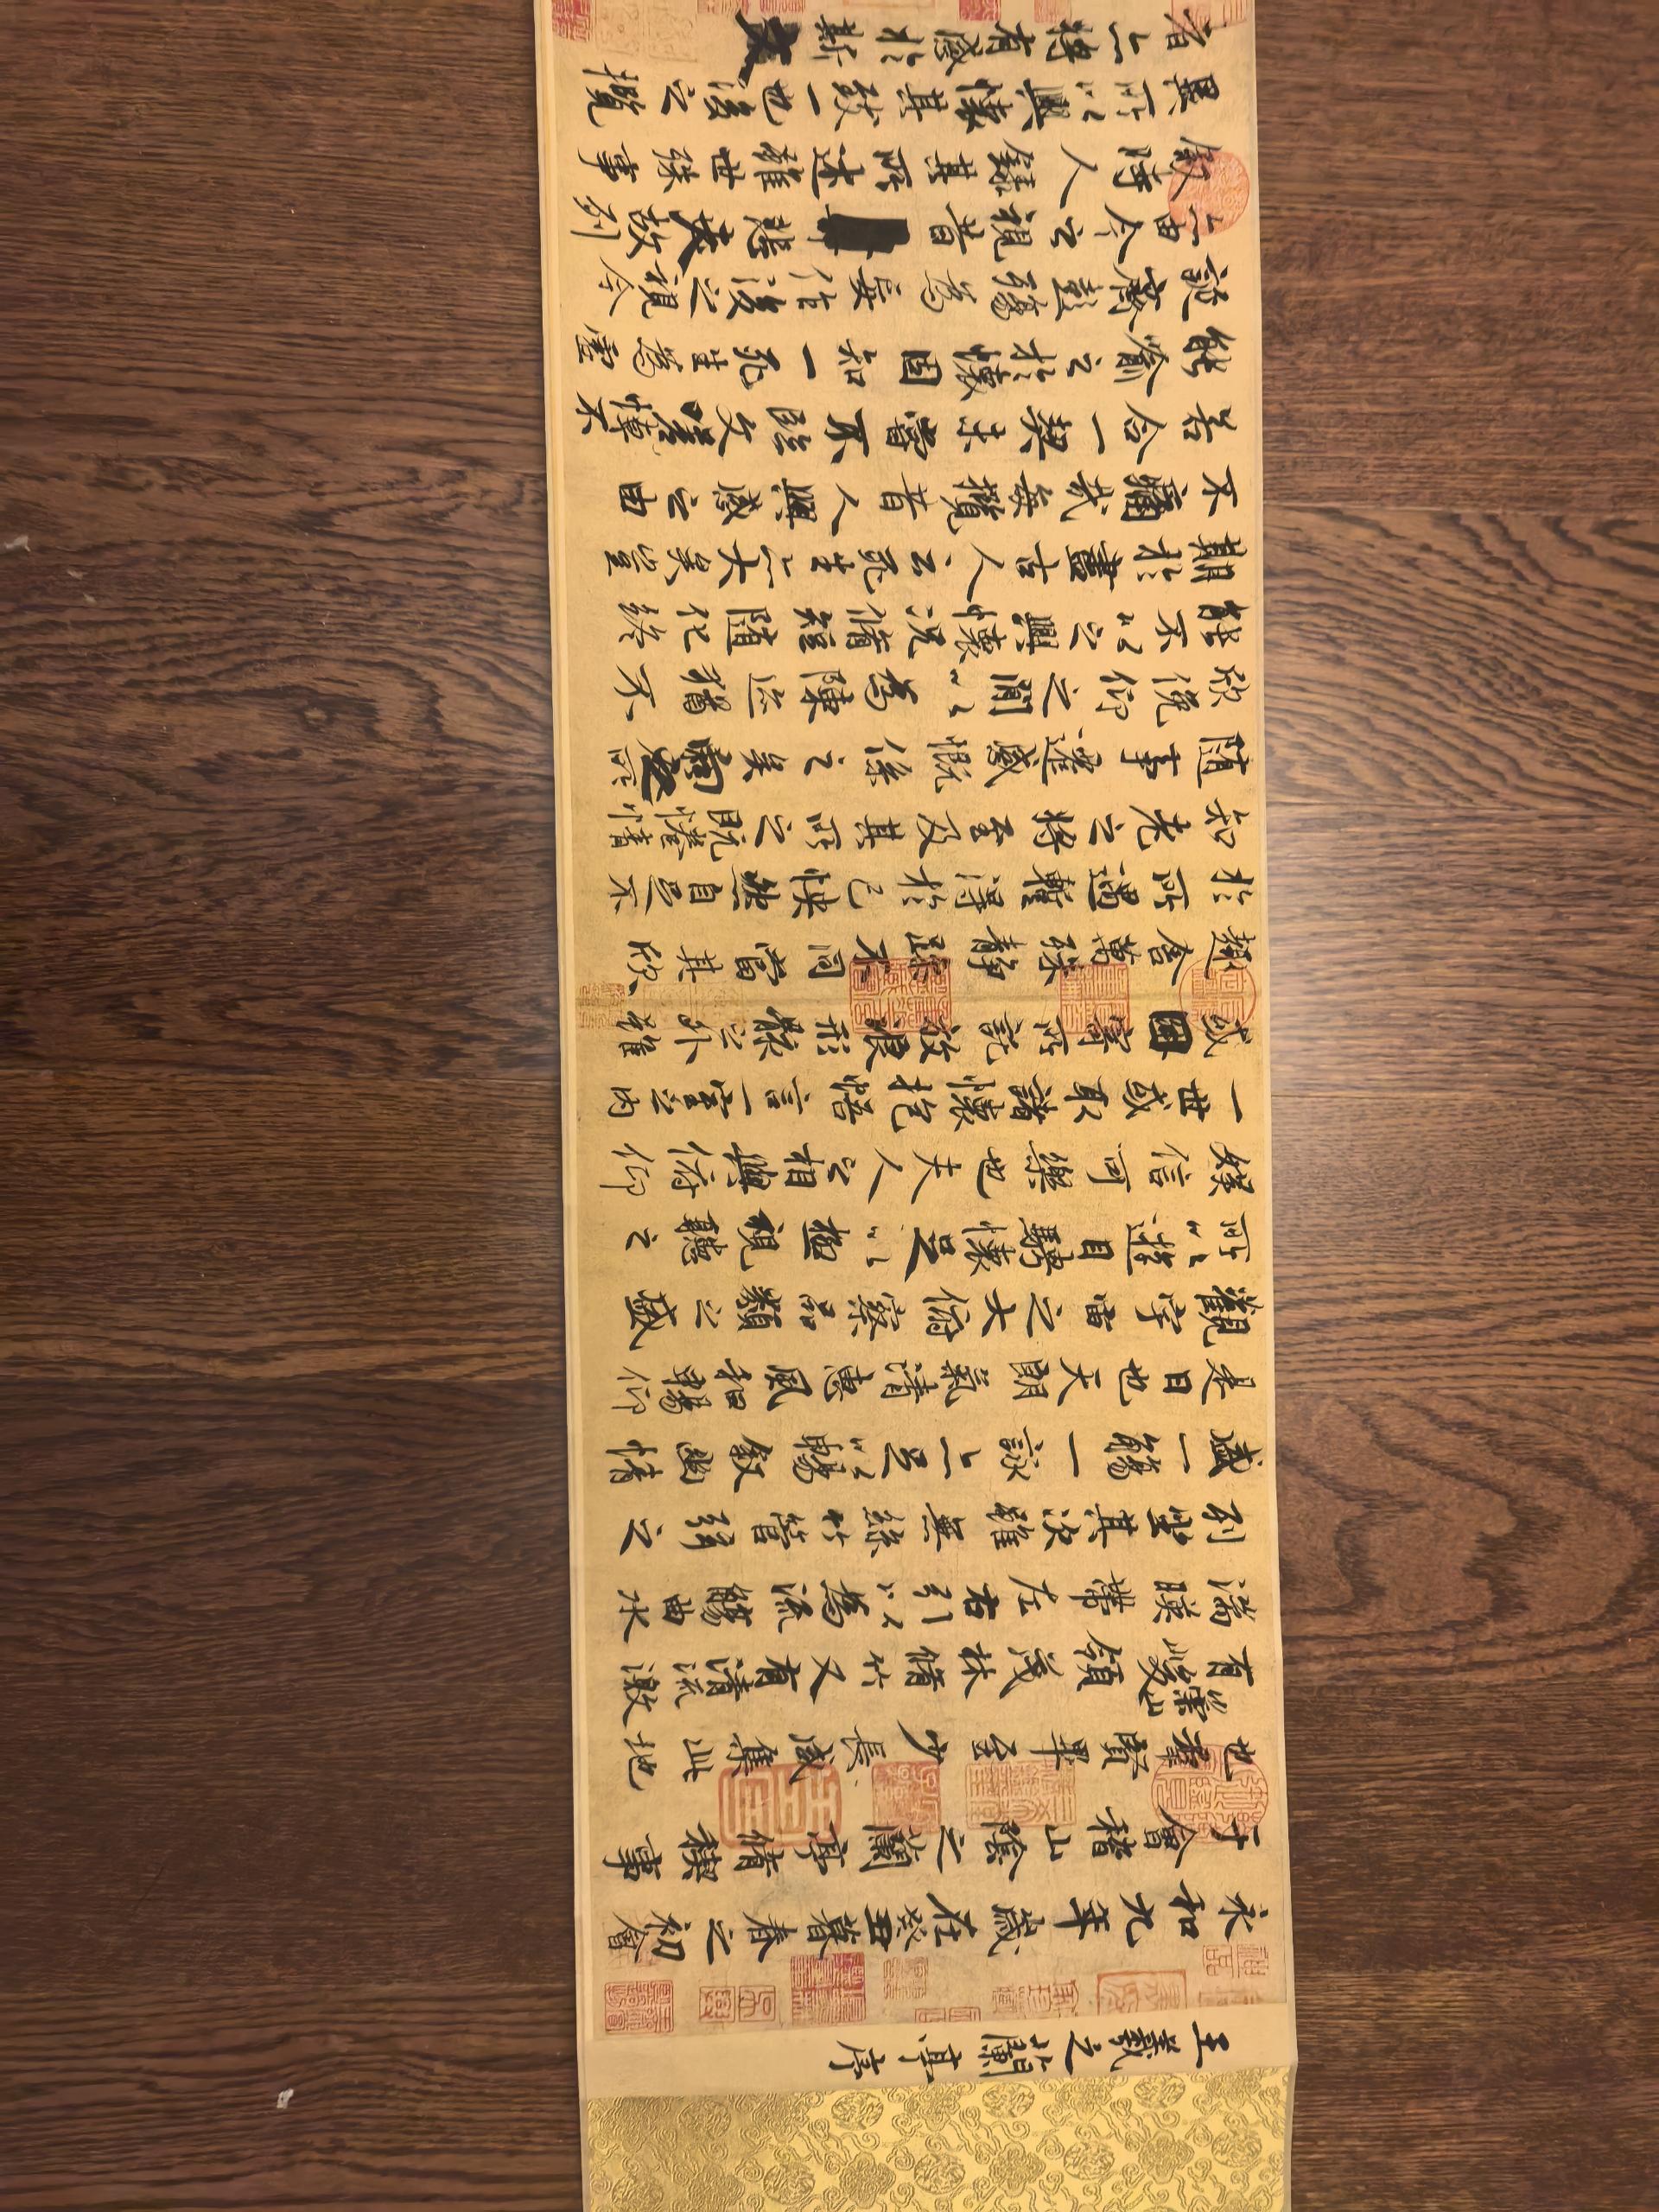 王羲之蘭亭序
永和九年歲在癸丑暮春之初會
于會稽山陰之蘭亭脩稧事
也羣賢畢至少長咸集此地
有崇山峻領茂林脩竹又有清流激
湍暎帶左右引以為流觴曲水
列坐其次雖無絲竹管弦之
盛一觴一詠亦足以暢敘幽情
是日也天朗氣清惠風和暢仰
觀宇宙之大俯察品類之盛
所以遊目騁懷足以極視聽之
娛信可樂也夫人之相與俯仰
一世或取諸懷抱悟言一室之內
或因寄所託放浪形骸之外雖
趣舍萬殊靜躁不同當其欣
於所遇蹔得於己怏然自足不
知老之將至及其所之既惓情
隨事遷感慨係之矣向之所
欣俛仰之閒以為陳迹猶不
能不以之興懷況脩短隨化終
期於盡古人云死生亦大矣豈
不痛哉每攬昔人興感之由
若合一契未嘗不臨文嗟悼不
能喻之於懷固知一死生為虛
誕齊彭殤為妄作後之視今
亦由今之視昔悲夫故列
敘時人錄其所述雖世殊事
異所以興懷其致一也後之攬
者亦將有感於斯文